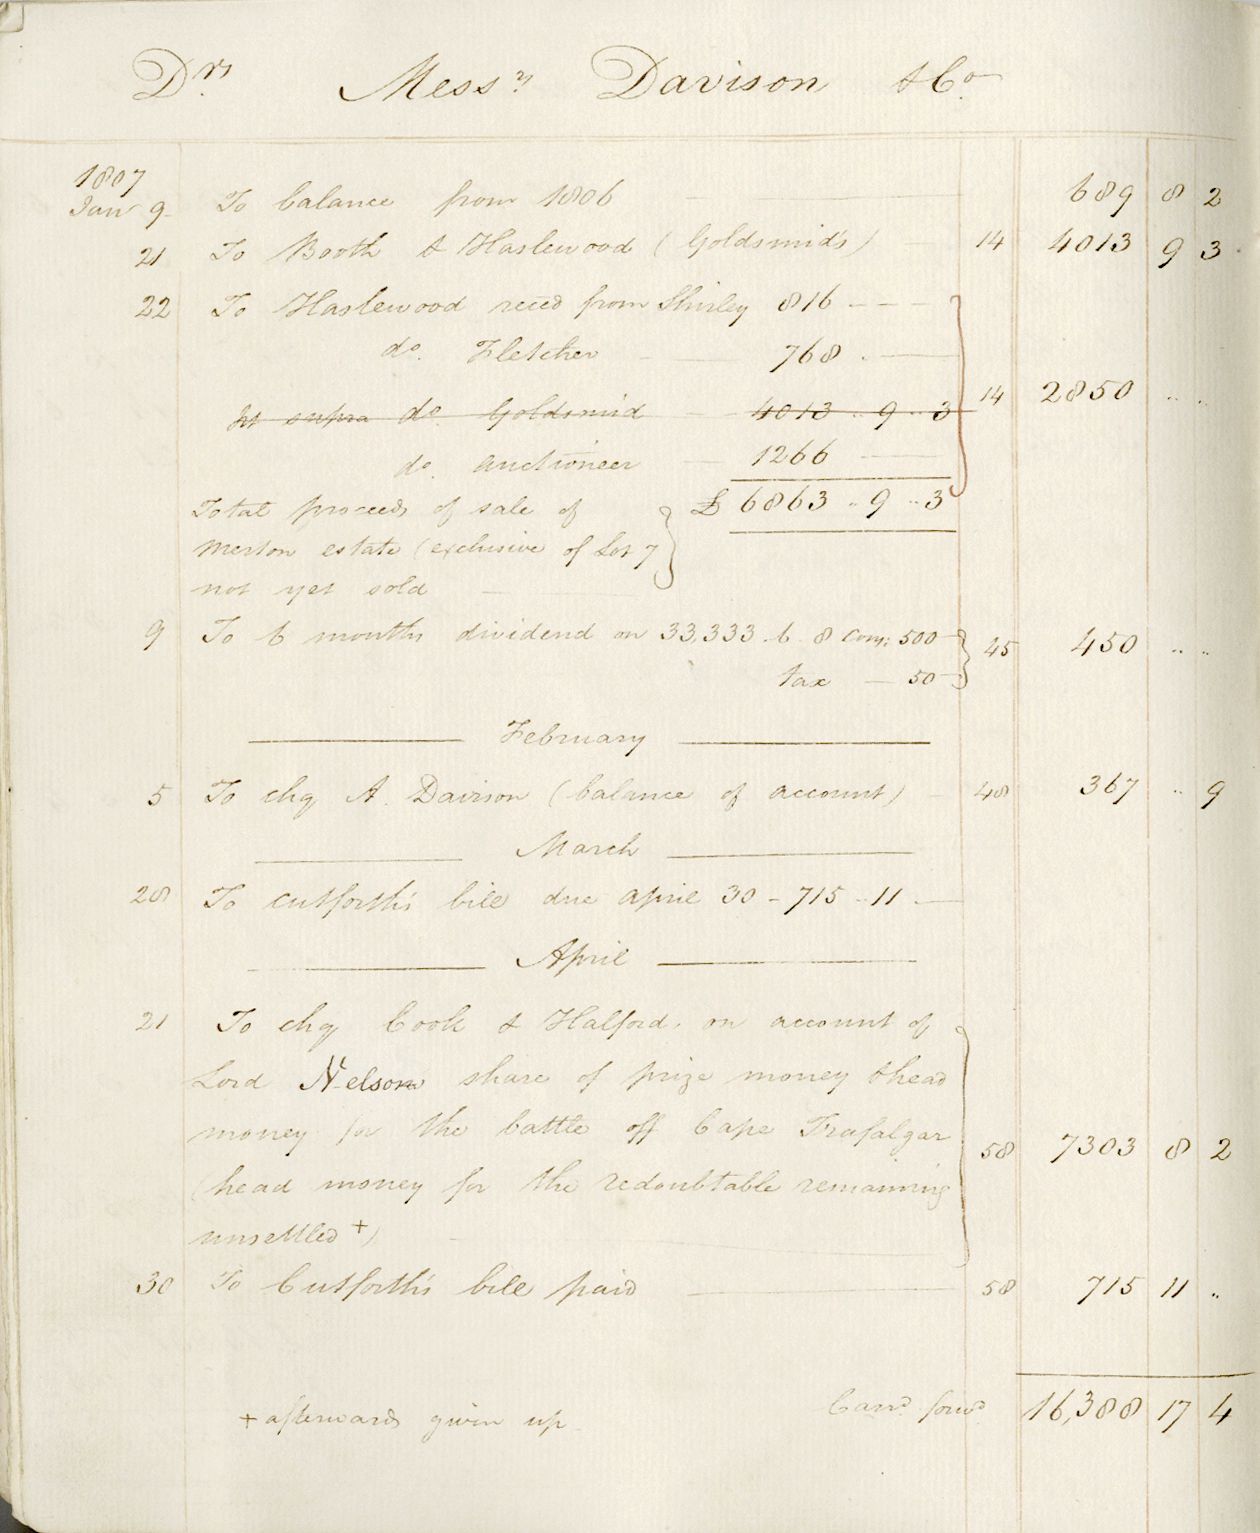 Drs Messrs Davison & Co.
1807
Jany 9 To balance from 1806 689 8 2
21 To Booth & Haslewood (Goldsmid's) 14 4013 9 3
22 To Haslewood reced from Shirley 816 14 2850 " "
do. Fletcher 768
ut supra do. Goldsmid 4013 " 9 " 3
do. auctioneer 1266
Total proceeds of sale of £ 6863 " 9 " 3
Merton estate (exclusive of Lot 7
not yet sold
9 To 6 months dividend on 33,333 . 6 . 8 Cons: 500 45 450 " "
tax 50
February
5 To chq A. Davison (balance of account) 48 367 " 9
March
28 To Cutforth's bill due april 30 - 715 " 11
April
21 To chq Cook & Halford, on account of
Lord Nelson share of prize money & head
money for the battle off Cape Trafalgar 58 7303 8 2
(head money for the redoubtable remaining
unsettled +)
30 To Cutforth's bill paid 58 715 11 "
+ afterwards given up Carrd forwd 16,388 17 4